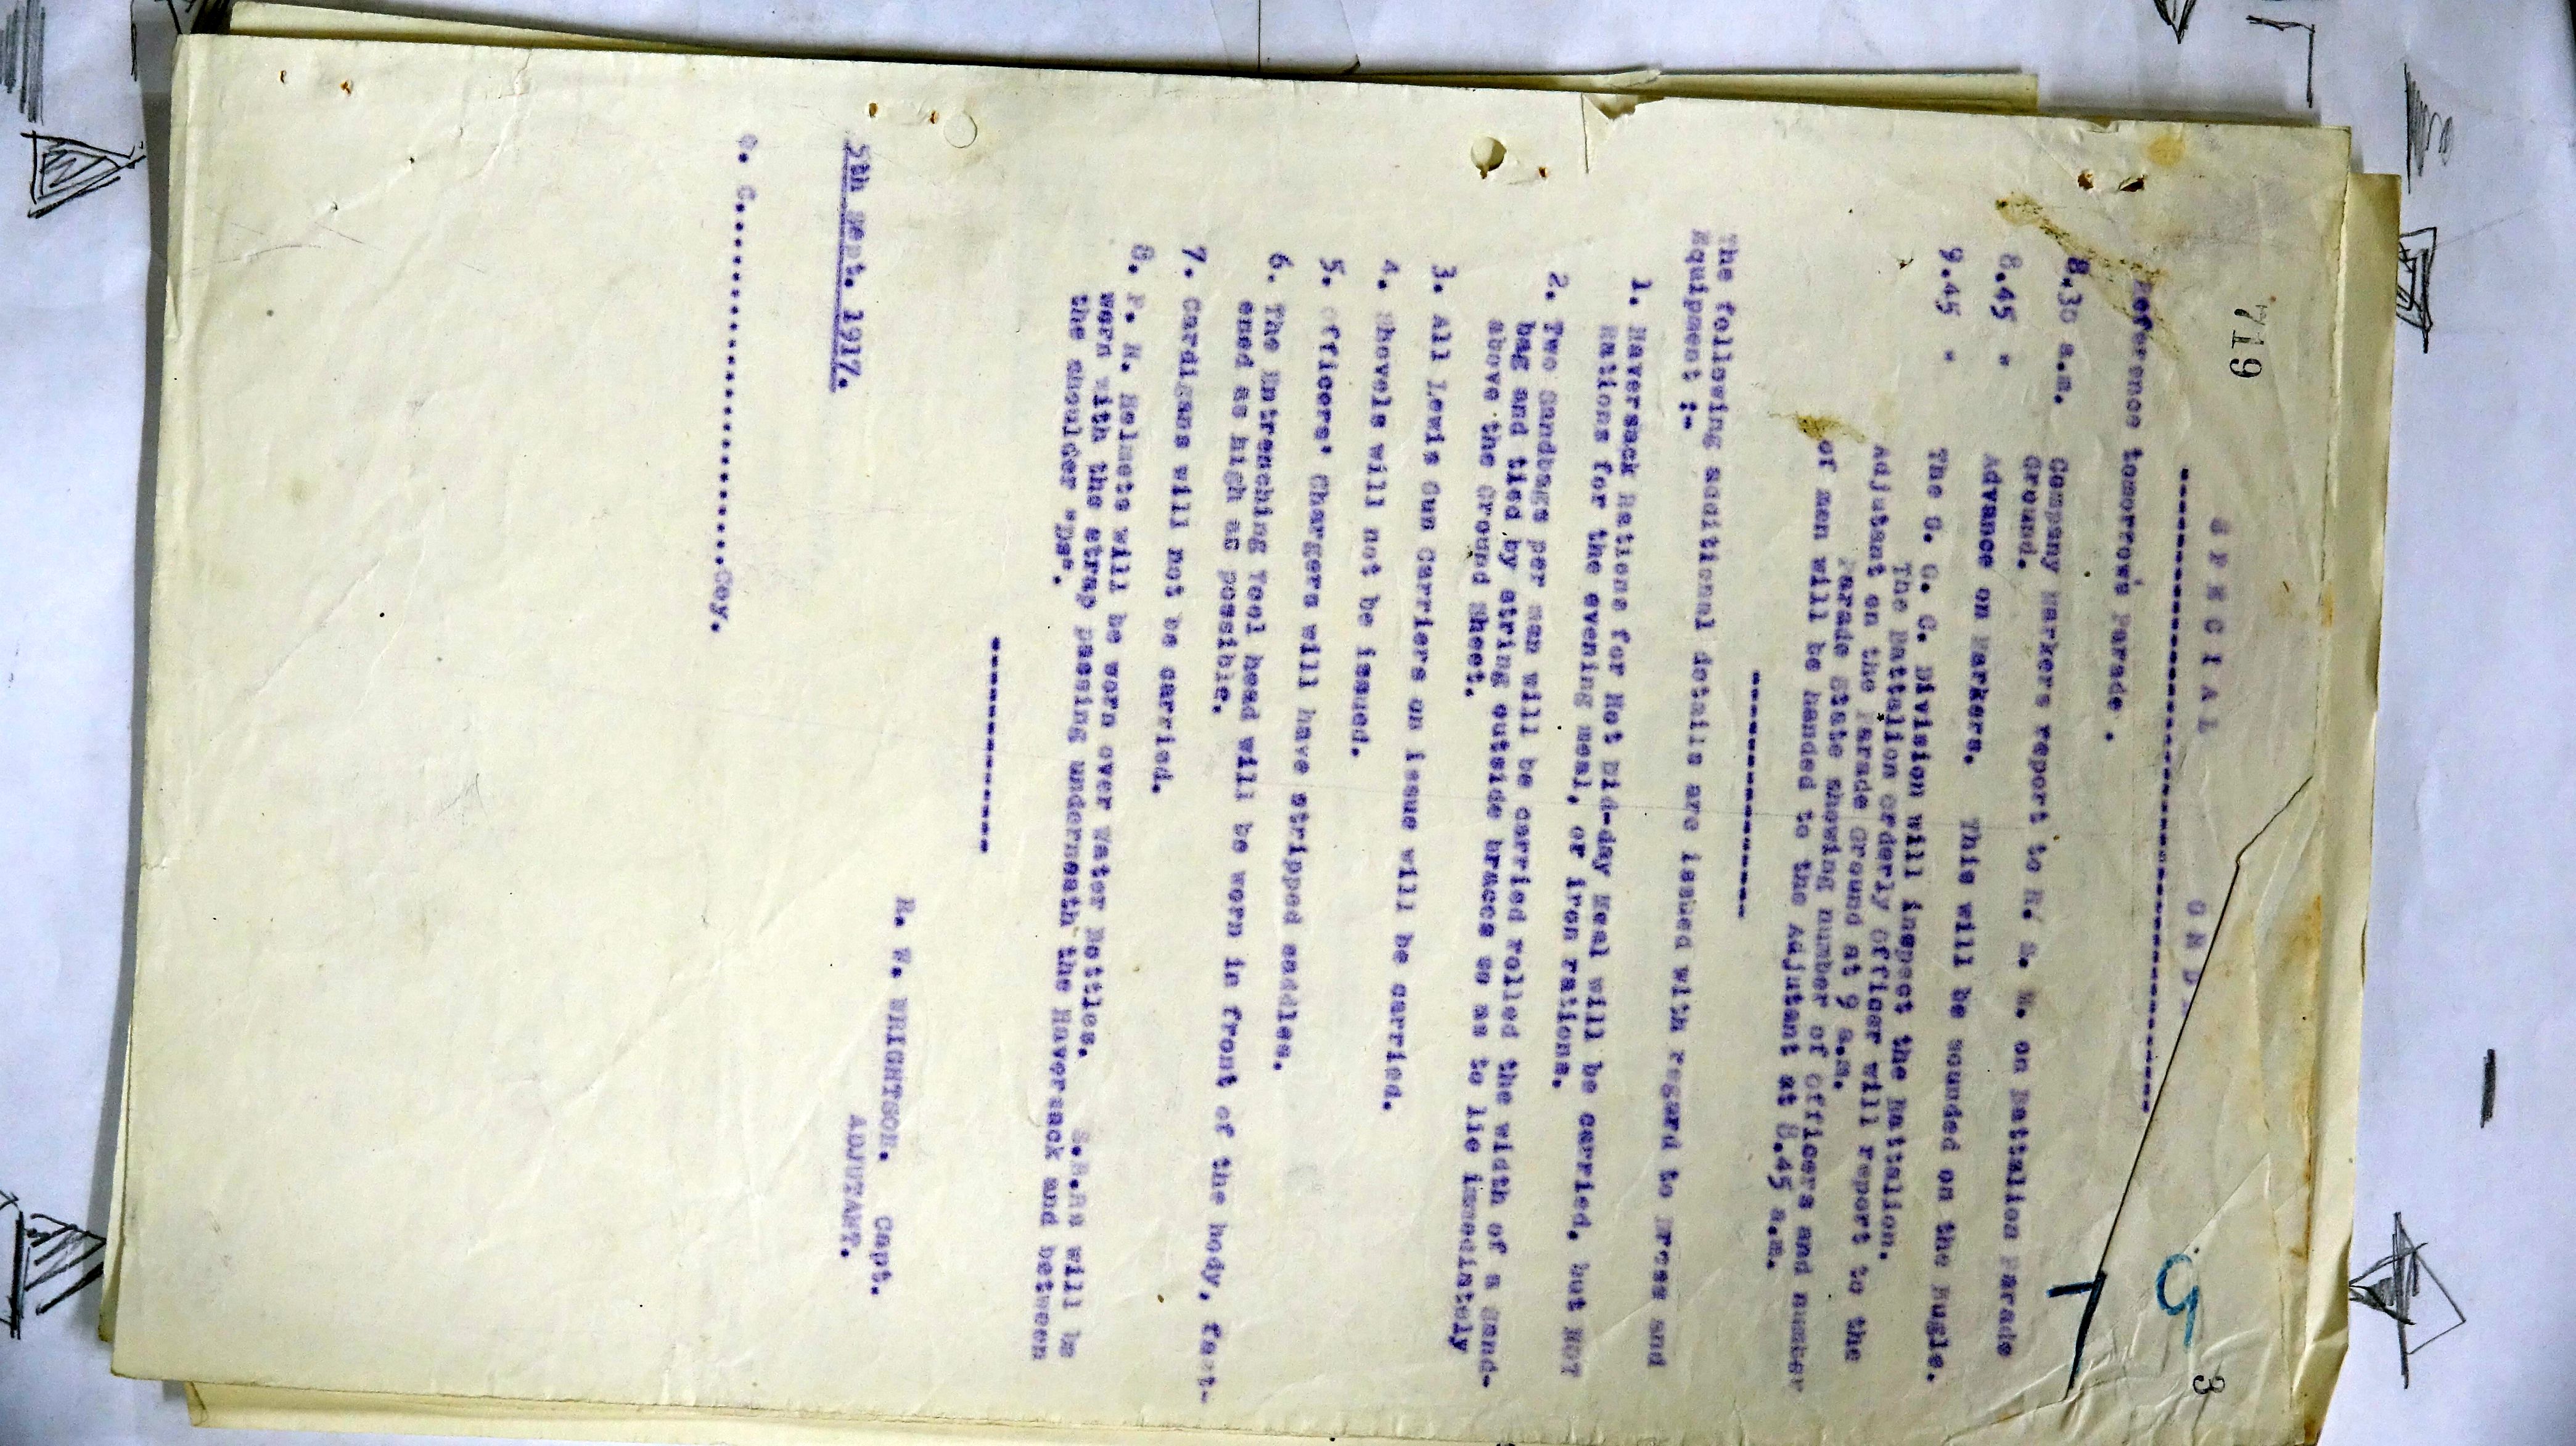 719
3
G
T
SPECIAL ORD
Reference tomorrow's Parade.
8.30 a.m. Company Markers report to R. S. M. on Battalion Parade
Ground.
8.45 " Advance on Markers. This will be sounded on the Bugle.
9.45 " The G. O. C. Division will inspect the Battalion.
The Battalion Orderly Officer will report to the
Adjutant on the Parade Ground at 9 a.m.
Parade State showing number of Officers and number
of men will be handed to the Adjutant at 8.45 a.m.
The following additional details are issued with regard to Dress and
Equipment :-
1. Haversack Rations for Hot Mid-day Meal will be carried, but NOT
Rations for the evening meal, or iron rations.
2. Two Sandbags per man will be carried rolled the width of a Sand-
bag and tied by string outside braces so as to lie immediately
above the Ground Sheet.
3. All Lewis Gun Carriers on issue will be carried.
4. Shovels will not be issued.
5. Officers' Chargers will have stripped saddles.
6. The Entrenching Tool head will be worn in front of the body, fast-
ened as high as possible.
7. Cardigans will not be carried.
8. P. H. Helmets will be worn over Water Bottles. S.B.Rs will be
worn with the strap passing underneath the Haversack and between
the shoulder "Ds".
R. W. WRIGHTSON. Capt.
ADJUTANT.
5th Sept. 1917.
O. C...........................Coy.